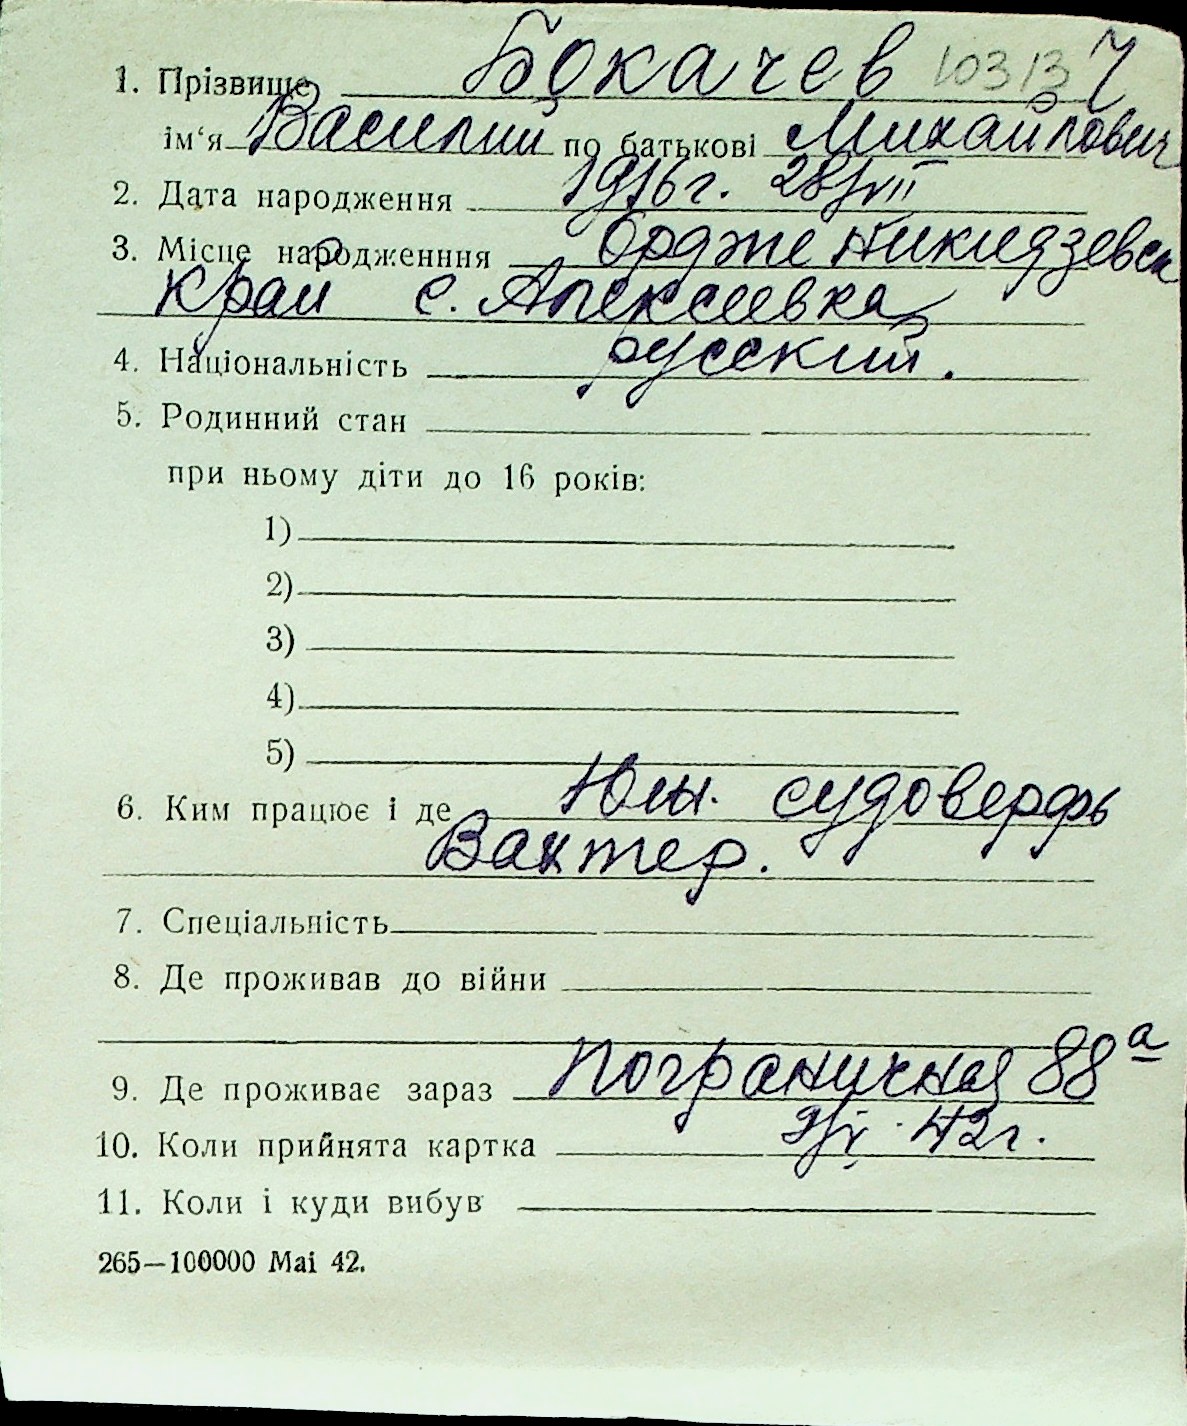 1. Прізвище Бокачев 10313 Ч
ім‘я Василий по батькові Михайлович
2. Дата народження 1916 г. 28/VII
3. Місце народженння Орджоникидзевск
край с. Алексеевка
4. Національність русский.
5. Родинний стан
при ньому діти до 16 років:
1)
2)
3)
4)
5)
6. Ким працює і де Южн. судоверфь
Вахтер.
7. Спеціальність
8. Де проживав до війни
9. Де проживає зараз Пограничная 88а
10. Коли прийнята картка 42 г.
11. Коли і куди вибув
265—100000 Mai 42.